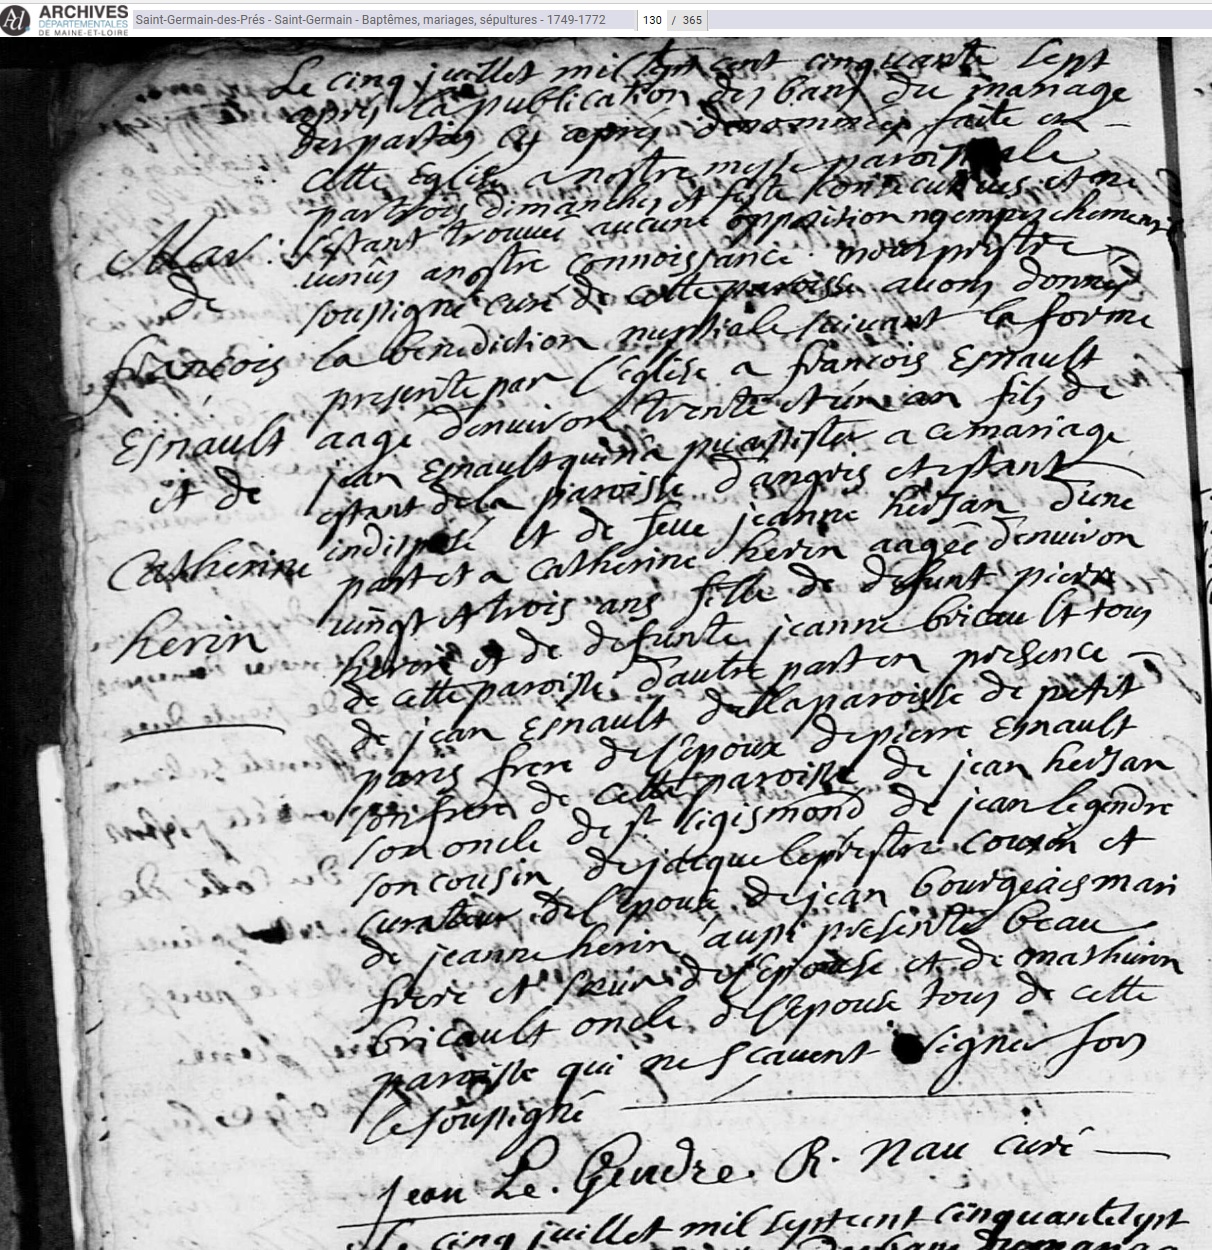 ARCHIVES
DÉPARTEMENTALES
DE MAINE-ET-LOIRE
Saint-Germain-des-Prés - Saint-Germain - Baptêmes, mariages, sépultures - 1749-1772
130 / 365
Le cinq juillet mil sept cent cinquante sept
apres la publication des bans du mariage
des parties cy apres denommées faite en
cette Eglise a nostre messe paroissiale
par trois dimanches et feste consecutives et ne
s'estant trouvé aucune opposition ny empeschement
venus a nostre connoissance nous prestre
soussigné curé de cette paroisse avons donné
la benediction nuptiale suivant la forme
presente par l'eglise a françois Esnault
aagé d'environ trente et un an fils de
jean Esnault qui n'a pu assister a ce mariage
estant de la paroisse d'angris et estant
indisposé et de feue jeanne hersan d'une
part et a Catherine herin aagée d'environ
vingt et trois ans fille de defunt pierre
herin et de defunte jeanne bricault tous
de cette paroisse d'autre part en presence
de jean Esnault de la paroisse de petit
paris frere de l'epoux de pierre Esnault
son frere de cette paroisse de jean hersan
son oncle de st sigismond de jean legendre
son cousin de jacque leprestre cousin et
curateur de l'epouse de jean bourgeais mari
de jeanne herin aussi presente beau
frere et sœur de l'epouse et de mathurin
bricault oncle de l'epouse tous de cette
paroisse qui ne scavent signer fors
le soussigné
Mar:
de
françois
Esnault
et de
Catherine
herin
Jean Le Gendre. R. Nau curé
Le cinq juillet mil sept cent cinquante sept